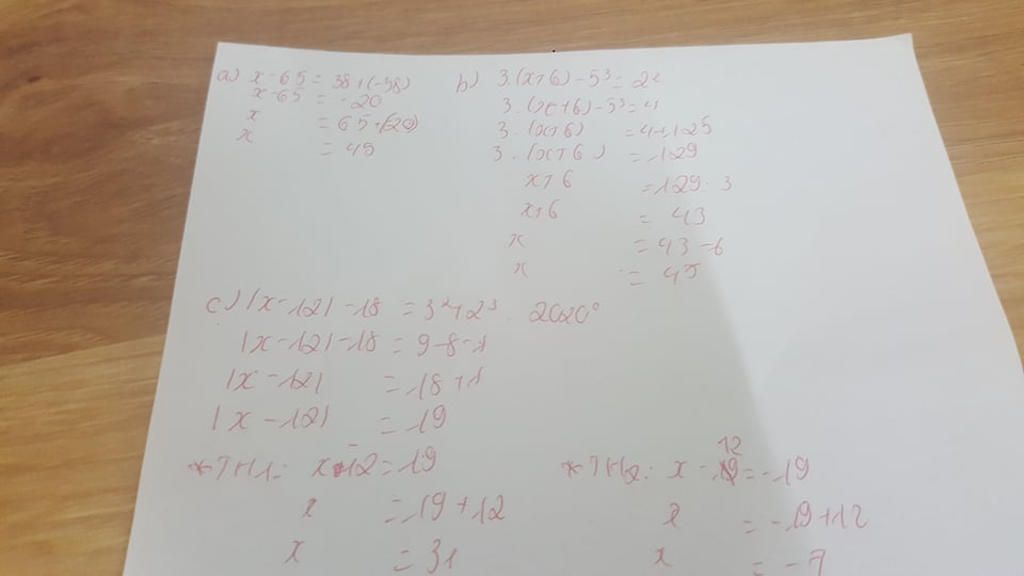 a) x - 65 = 38 + (-58)
x - 65 = -20
x = 65 + (-20)
x = 45
b) 3.(x+6) - 5³ = 2²
3.(x+6) - 5³ = 4
3.(x+6) = 4+125
3.(x+6) = 129
x+6 = 129 : 3
x+6 = 43
x = 43 - 6
x =
c) |x - 12| - 18 = 3² 2³ . 2020⁰
|x - 12| - 18 = 9 - 8 - 1
|x - 12| = 18 + 1
|x - 12| = 19
*TH1: x - 12 = 19
x = 19 + 12
x = 31
*TH2: x - 12 = -19
x = -19 + 12
x = -7